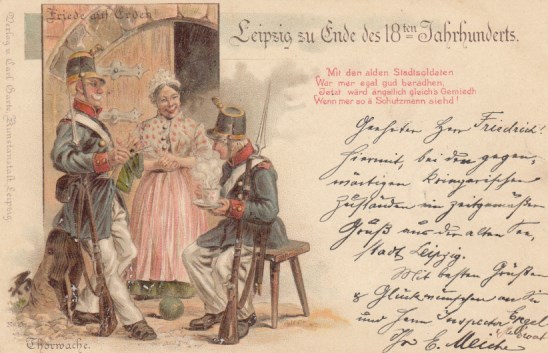 Friede auf Erden!
Leipzig zu Ende des 18ten Jahrhunderts.
Mit den alden Stadtsoldaten
War mer egal gud berathen,
Jetzt wärd ängstlich gleichs Gemiedh
Wenn mer so ä Schutzmann siehd!
Geehrter Herr Friedrich!
Hiermit, bei den gegen-
wärtigen kriegerischen
Zuständen ein zeitgemäßer
Gruß aus der alten See-
stadt Leipzig.
Mit besten Grüßen
& Glückwünschen an Sie
und Herrn Inspector Engel
Ihr E.
Thorwache.
Verlag v. Carl Garte, Kunstanstalt, Leipzig